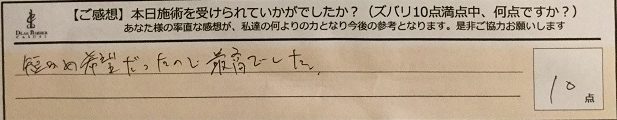 【ご感想】本日施術を受けられていかがでしたか？（ズバリ10点満点中、何点ですか？）
あなた様の率直な感想が、私達の何よりの力となり今後の参考となります。是非ご協力お願いします
DEAR BARBER
短かめ希望だったので最高でした。
10点